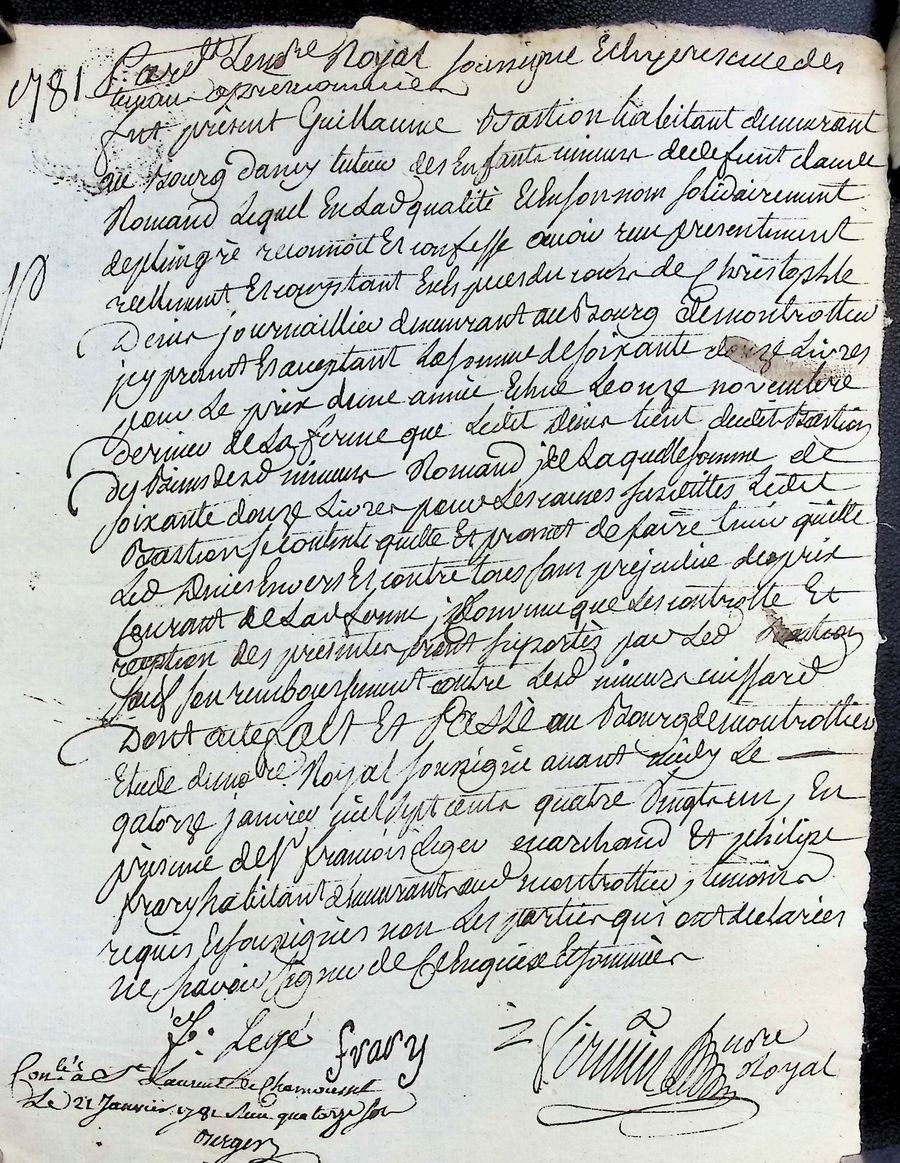 1781
Pardt Le nore Royal soussigné Et En presence des
temoins apres nommés
fut présent Guillaume Bastion habitant demeurant
au Bourg dancy tuteur des Enfants mineurs de defunt claude
Romand Lequel En Lad qualité Et En son nom solidairement
de plein gré reconnoit Et confesse avoir reçu presentement
reellement Et comptant En Especes du cours de Christophle
Denis journaillier demeurant au Bourg de montrottier
jcy present Et acceptant La somme de soixante douze Livres
pour Le prix dune année Echue Le onze novembre
dernier de La ferme que Ledit Denis tient dudit Bastion
des Biens desd mineurs Romand ; de Laquelle somme de
soixante douze Livres pour Les causes susdittes Ledit
Bastion se contente quitte Et promet de faire tenir quitte
Led Denis Envers Et contre tous sans préjudice du prix
Courant de Lad ferme ; Convenu que Les controlle Et
reception des presentes seront suportés par Led Bastion
sauf son remboursement contre Lesd mineurs
Dont acte fait Et Passé au Bourg de montrottier
Etude du nore Royal soussigné avant midy Le
quatorze janvier mil sept cents quatre vingt un, En
présence de sr françois Leger marchand Et philipe
frary habitant demeurants aud montrottier, temoins
requis Et soussignés non Les parties qui ont declarées
ne sçavoir signer de Ce Enquises Et sommées
f. Legé
frary
nore
Royal
Conlé à St Laurent de Chamousset
Le 21 Janvier 1781 Reçu quatorze sols
Berger